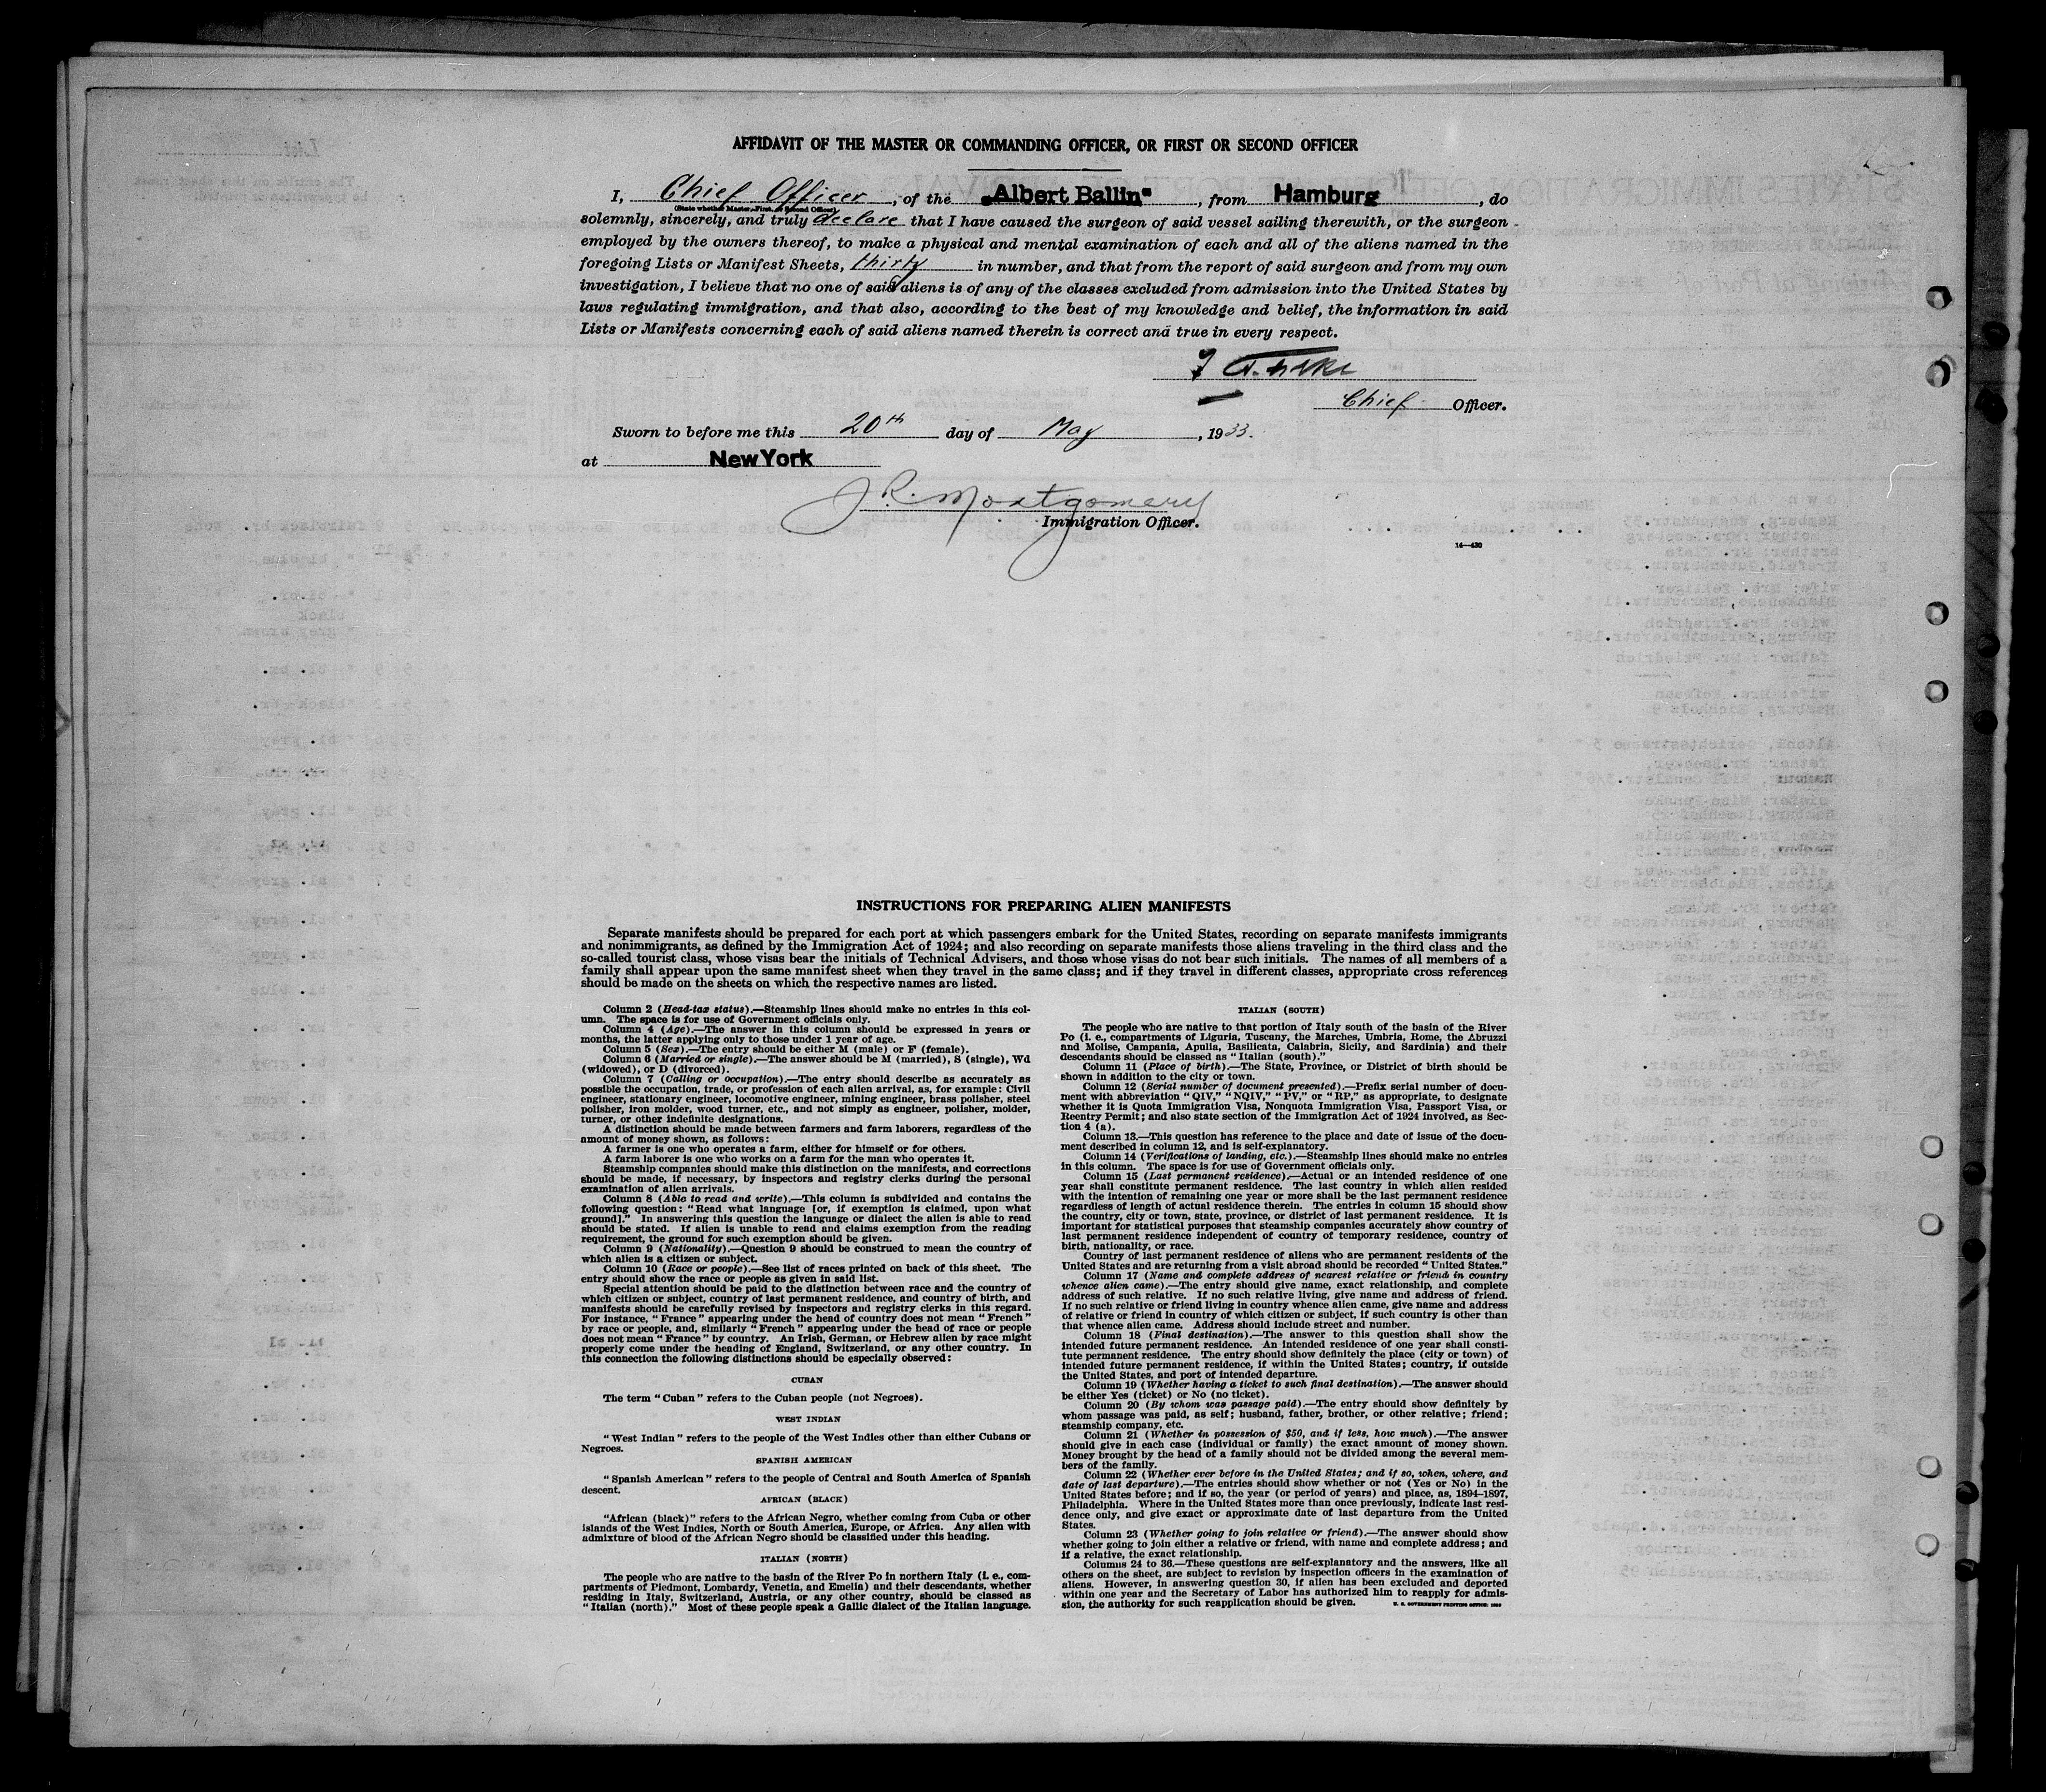 AFFIDAVIT OF THE MASTER OR COMMANDING OFFICER, OR FIRST OR SECOND OFFICER
I, Chief Officer, of the „Albert Ballin", from Hamburg, do
(State whether Master, First, or Second Officer)
solemnly, sincerely, and truly declare that I have caused the surgeon of said vessel sailing therewith, or the surgeon
employed by the owners thereof, to make a physical and mental examination of each and all of the aliens named in the
foregoing Lists or Manifest Sheets, thirty in number, and that from the report of said surgeon and from my own
investigation, I believe that no one of said aliens is of any of the classes excluded from admission into the United States by
laws regulating immigration, and that also, according to the best of my knowledge and belief, the information in said
Lists or Manifests concerning each of said aliens named therein is correct and true in every respect.
Chief Officer.
Sworn to before me this 20th day of May, 1933.
at New York
J R. Montgomery
Immigration Officer.
14—430
INSTRUCTIONS FOR PREPARING ALIEN MANIFESTS
Separate manifests should be prepared for each port at which passengers embark for the United States, recording on separate manifests immigrants
and nonimmigrants, as defined by the Immigration Act of 1924; and also recording on separate manifests those aliens traveling in the third class and the
so-called tourist class, whose visas bear the initials of Technical Advisers, and those whose visas do not bear such initials. The names of all members of a
family shall appear upon the same manifest sheet when they travel in the same class; and if they travel in different classes, appropriate cross references
should be made on the sheets on which the respective names are listed.
Column 2 (Head-tax status).—Steamship lines should make no entries in this col-
umn. The space is for use of Government officials only.
Column 4 (Age).—The answer in this column should be expressed in years or
months, the latter applying only to those under 1 year of age.
Column 5 (Sex).—The entry should be either M (male) or F (female).
Column 6 (Married or single).—The answer should be M (married), S (single), Wd
(widowed), or D (divorced).
Column 7 (Calling or occupation).—The entry should describe as accurately as
possible the occupation, trade, or profession of each alien arrival, as, for example: Civil
engineer, stationary engineer, locomotive engineer, mining engineer, brass polisher, steel
polisher, iron molder, wood turner, etc., and not simply as engineer, polisher, molder,
turner, or other indefinite designations.
A distinction should be made between farmers and farm laborers, regardless of the
amount of money shown, as follows:
A farmer is one who operates a farm, either for himself or for others.
A farm laborer is one who works on a farm for the man who operates it.
Steamship companies should make this distinction on the manifests, and corrections
should be made, if necessary, by inspectors and registry clerks during the personal
examination of alien arrivals.
Column 8 (Able to read and write).—This column is subdivided and contains the
following question: "Read what language [or, if exemption is claimed, upon what
ground]." In answering this question the language or dialect the alien is able to read
should be stated. If alien is unable to read and claims exemption from the reading
requirement, the ground for such exemption should be given.
Column 9 (Nationality).—Question 9 should be construed to mean the country of
which alien is a citizen or subject.
Column 10 (Race or people).—See list of races printed on back of this sheet. The
entry should show the race or people as given in said list.
Special attention should be paid to the distinction between race and the country of
which citizen or subject, country of last permanent residence, and country of birth, and
manifests should be carefully revised by inspectors and registry clerks in this regard.
For instance, "France" appearing under the head of country does not mean "French"
by race or people, and, similarly "French" appearing under the head of race or people
does not mean "France" by country. An Irish, German, or Hebrew alien by race might
properly come under the heading of England, Switzerland, or any other country. In
this connection the following distinctions should be especially observed:
CUBAN
The term "Cuban" refers to the Cuban people (not Negroes).
WEST INDIAN
"West Indian" refers to the people of the West Indies other than either Cubans or
Negroes.
SPANISH AMERICAN
"Spanish American" refers to the people of Central and South America of Spanish
descent.
AFRICAN (BLACK)
"African (black)" refers to the African Negro, whether coming from Cuba or other
islands of the West Indies, North or South America, Europe, or Africa. Any alien with
admixture of blood of the African Negro should be classified under this heading.
ITALIAN (NORTH)
The people who are native to the basin of the River Po in northern Italy (i. e., com-
partments of Piedmont, Lombardy, Venetia, and Emelia) and their descendants, whether
residing in Italy, Switzerland, Austria, or any other country, should be classed as
"Italian (north)." Most of these people speak a Gallic dialect of the Italian language.
ITALIAN (SOUTH)
The people who are native to that portion of Italy south of the basin of the River
Po (i. e., compartments of Liguria, Tuscany, the Marches, Umbria, Rome, the Abruzzi
and Molise, Campania, Apulia, Basilicata, Calabria, Sicily, and Sardinia) and their
descendants should be classed as "Italian (south)."
Column 11 (Place of birth).—The State, Province, or District of birth should be
shown in addition to the city or town.
Column 12 (Serial number of document presented).—Prefix serial number of docu-
ment with abbreviation "QIV," "NQIV," "PV," or "RP," as appropriate, to designate
whether it is Quota Immigration Visa, Nonquota Immigration Visa, Passport Visa, or
Reentry Permit; and also state section of the Immigration Act of 1924 involved, as Sec-
tion 4 (a).
Column 13.—This question has reference to the place and date of issue of the docu-
ment described in column 12, and is self-explanatory.
Column 14 (Verifications of landing, etc.).—Steamship lines should make no entries
in this column. The space is for use of Government officials only.
Column 15 (Last permanent residence).—Actual or an intended residence of one
year shall constitute permanent residence. The last country in which alien resided
with the intention of remaining one year or more shall be the last permanent residence
regardless of length of actual residence therein. The entries in column 15 should show
the country, city or town, state, province, or district of last permanent residence. It is
important for statistical purposes that steamship companies accurately show country of
last permanent residence independent of country of temporary residence, country of
birth, nationality, or race.
Country of last permanent residence of aliens who are permanent residents of the
United States and are returning from a visit abroad should be recorded "United States."
Column 17 (Name and complete address of nearest relative or friend in country
whence alien came).—The entry should give name, exact relationship, and complete
address of such relative. If no such relative living, give name and address of friend.
If no such relative or friend living in country whence alien came, give name and address
of relative or friend in country of which citizen or subject, if such country is other than
that whence alien came. Address should include street and number.
Column 18 (Final destination).—The answer to this question shall show the
intended future permanent residence. An intended residence of one year shall consti-
tute permanent residence. The entry should show definitely the place (city or town) of
intended future permanent residence, if within the United States; country, if outside
the United States, and port of intended departure.
Column 19 (Whether having a ticket to such final destination).—The answer should
be either Yes (ticket) or No (no ticket).
Column 20 (By whom was passage paid).—The entry should show definitely by
whom passage was paid, as self; husband, father, brother, or other relative; friend;
steamship company, etc.
Column 21 (Whether in possession of $50, and if less, how much).—The answer
should give in each case (individual or family) the exact amount of money shown.
Money brought by the head of a family should not be divided among the several mem-
bers of the family.
Column 22 (Whether ever before in the United States; and if so, when, where, and
date of last departure).—The entries should show whether or not (Yes or No) in the
United States before; and if so, the year (or period of years) and place, as, 1894–1897,
Philadelphia. Where in the United States more than once previously, indicate last resi-
dence only, and give exact or approximate date of last departure from the United
States.
Column 23 (Whether going to join relative or friend).—The answer should show
whether going to join either a relative or friend, with name and complete address; and
if a relative, the exact relationship.
Columns 24 to 36.—These questions are self-explanatory and the answers, like all
others on the sheet, are subject to revision by inspection officers in the examination of
aliens. However, in answering question 30, if alien has been excluded and deported
within one year and the Secretary of Labor has authorized him to reapply for admis-
sion, the authority for such reapplication should be given.
U. S. GOVERNMENT PRINTING OFFICE: